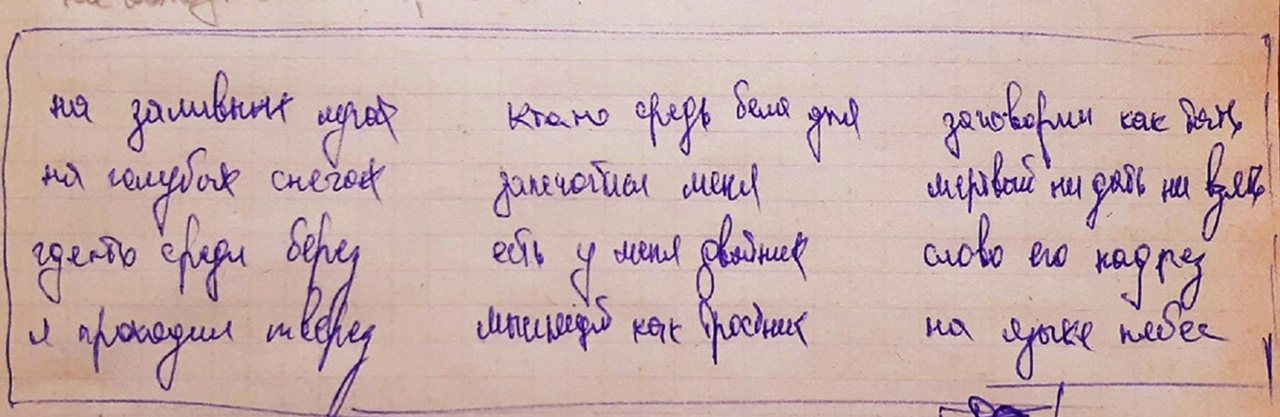 на заливных лугах
на голубых снегах
гдето среди берез
я проходил тверез
ктото средь бела дня
запечатлел меня
есть у меня двойник
мыслящий как тростник
заговорил как бять
мертвый ни дать ни взять
слово его надрез
на языке небес